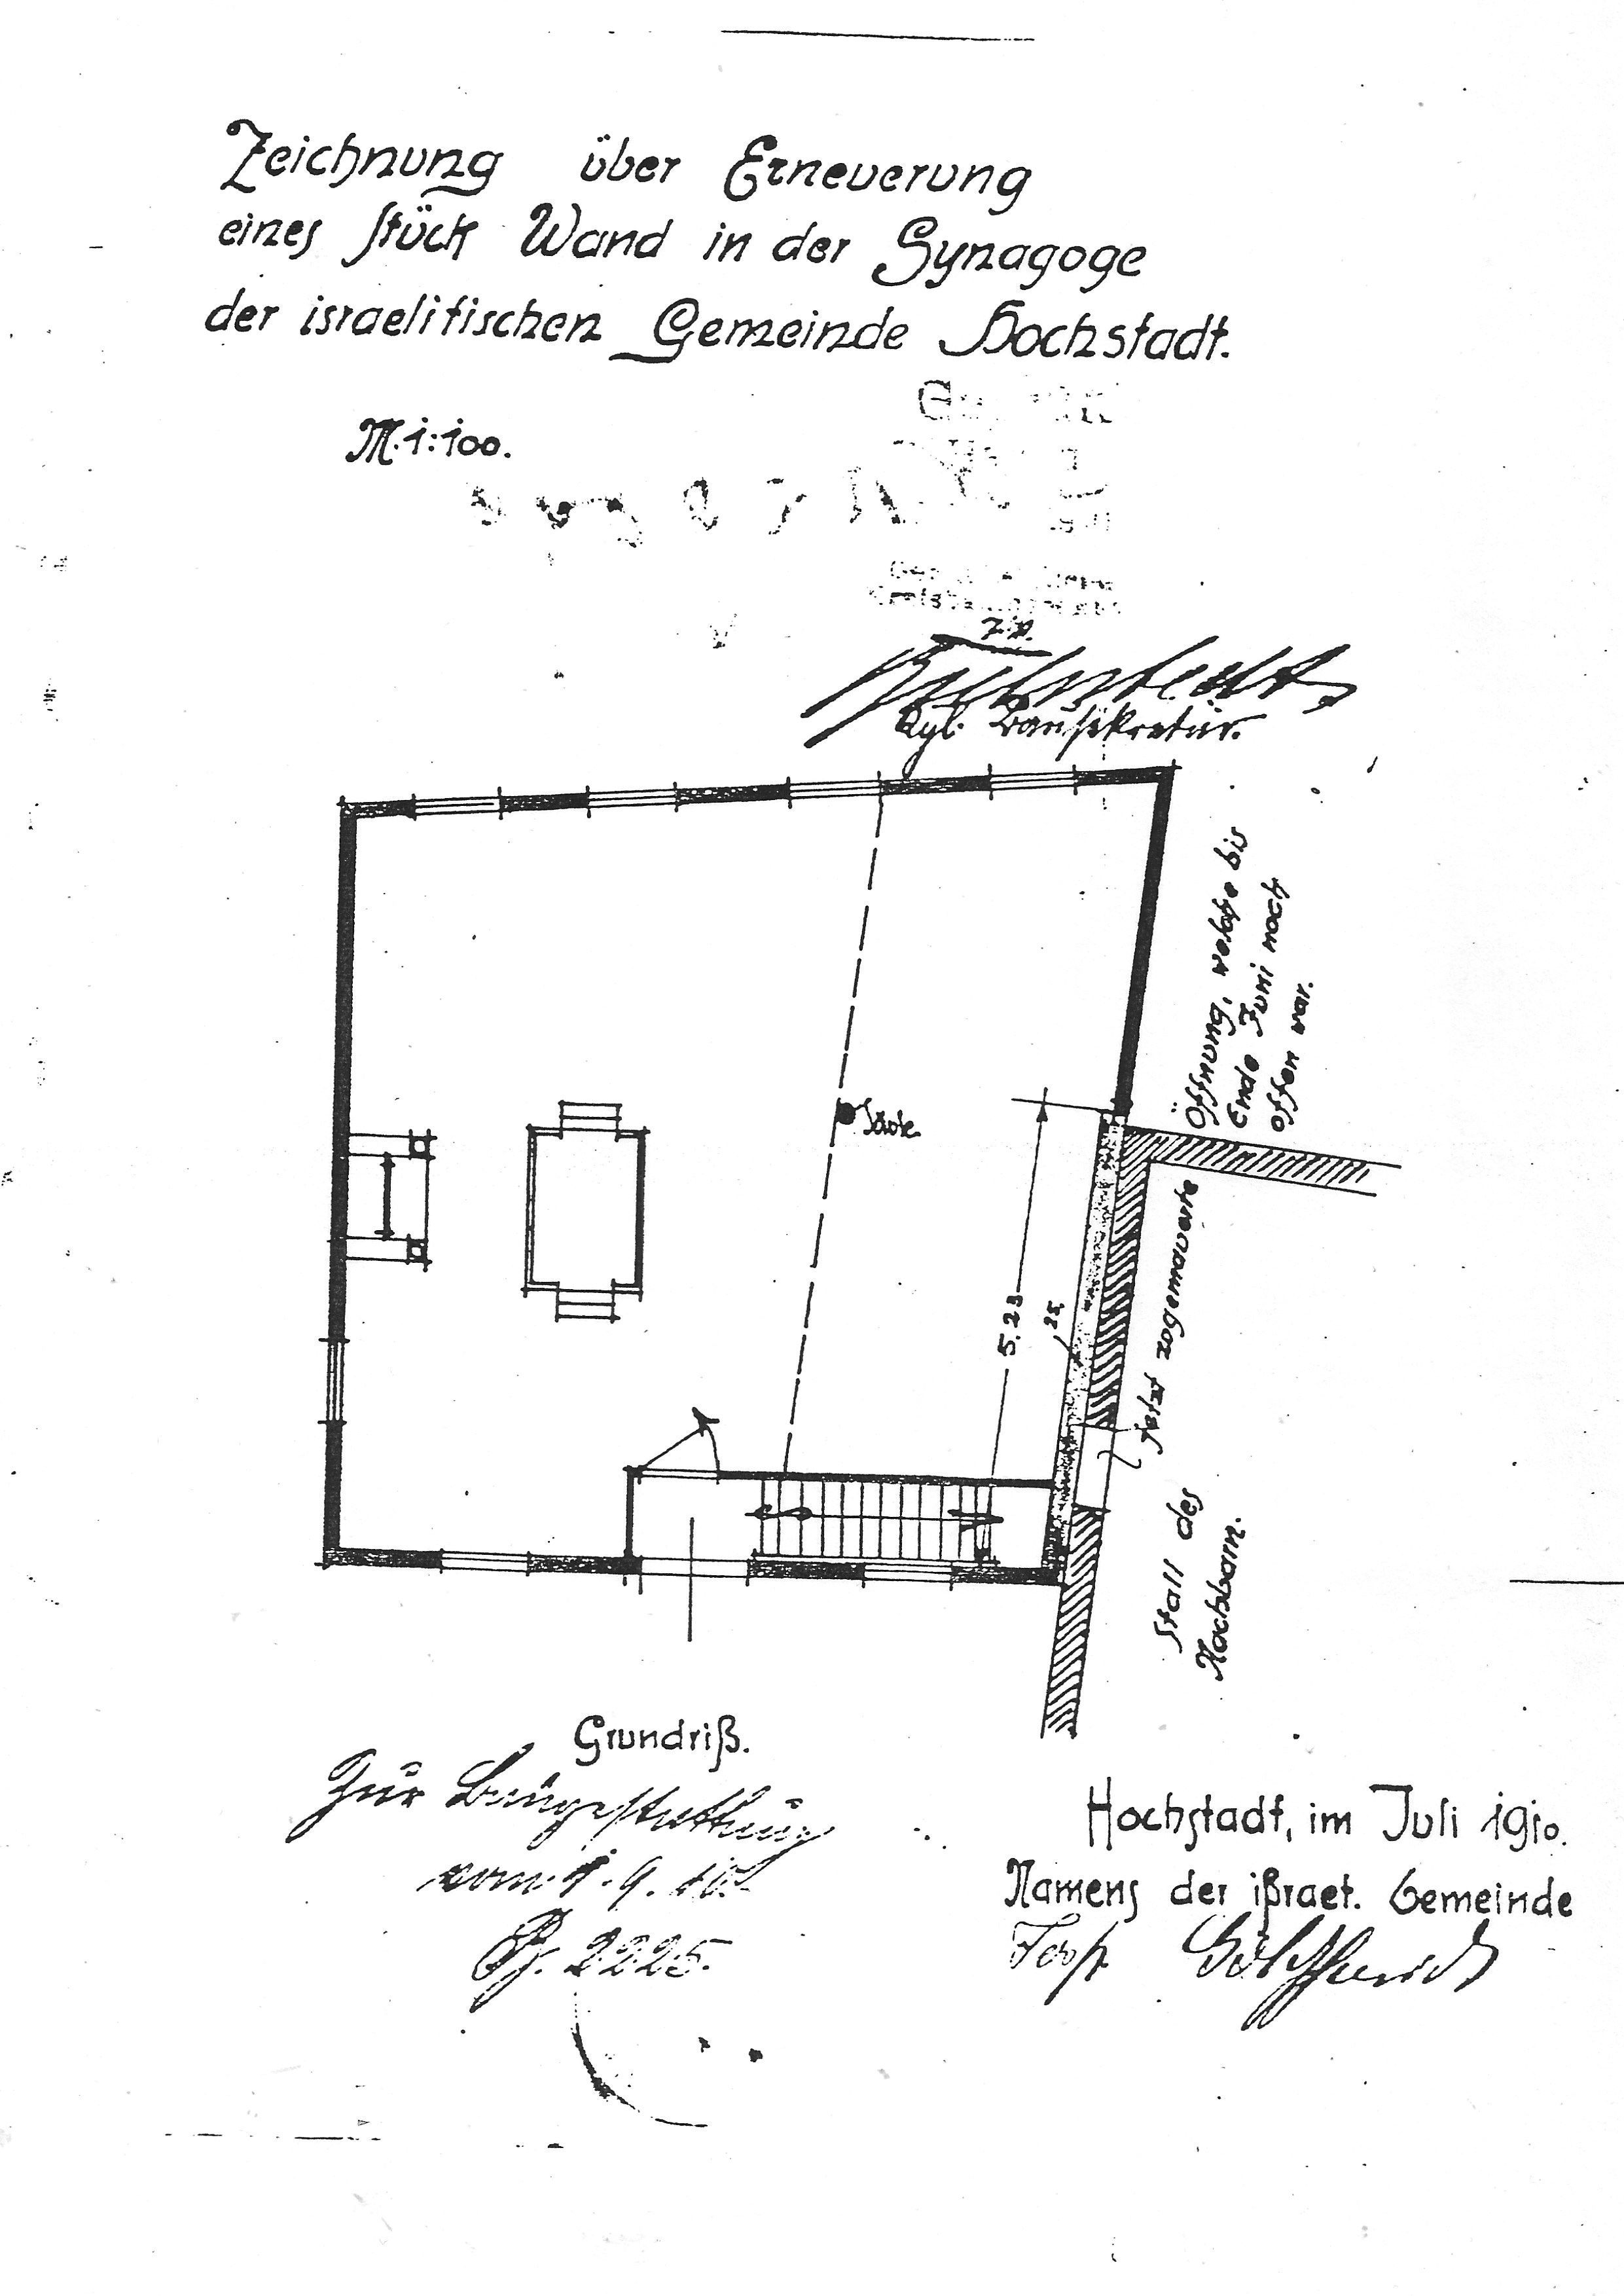 Zeichnung über Erneuerung
eines Stück Wand in der Synagoge
der israelitischen Gemeinde Hochstadt.
M. 1:100.
Kgl. Bausekretär.
Öffnung, welche bis
Ende Juni noch
offen war.
Säule
5,23
,25
jetzt zugemauert
Stall des
Nachbarn.
Grundriß.
Zur Baugestattung
vom 1.9.10.
2225.
Hochstadt, im Juli 1910.
Namens der ißrael. Gemeinde